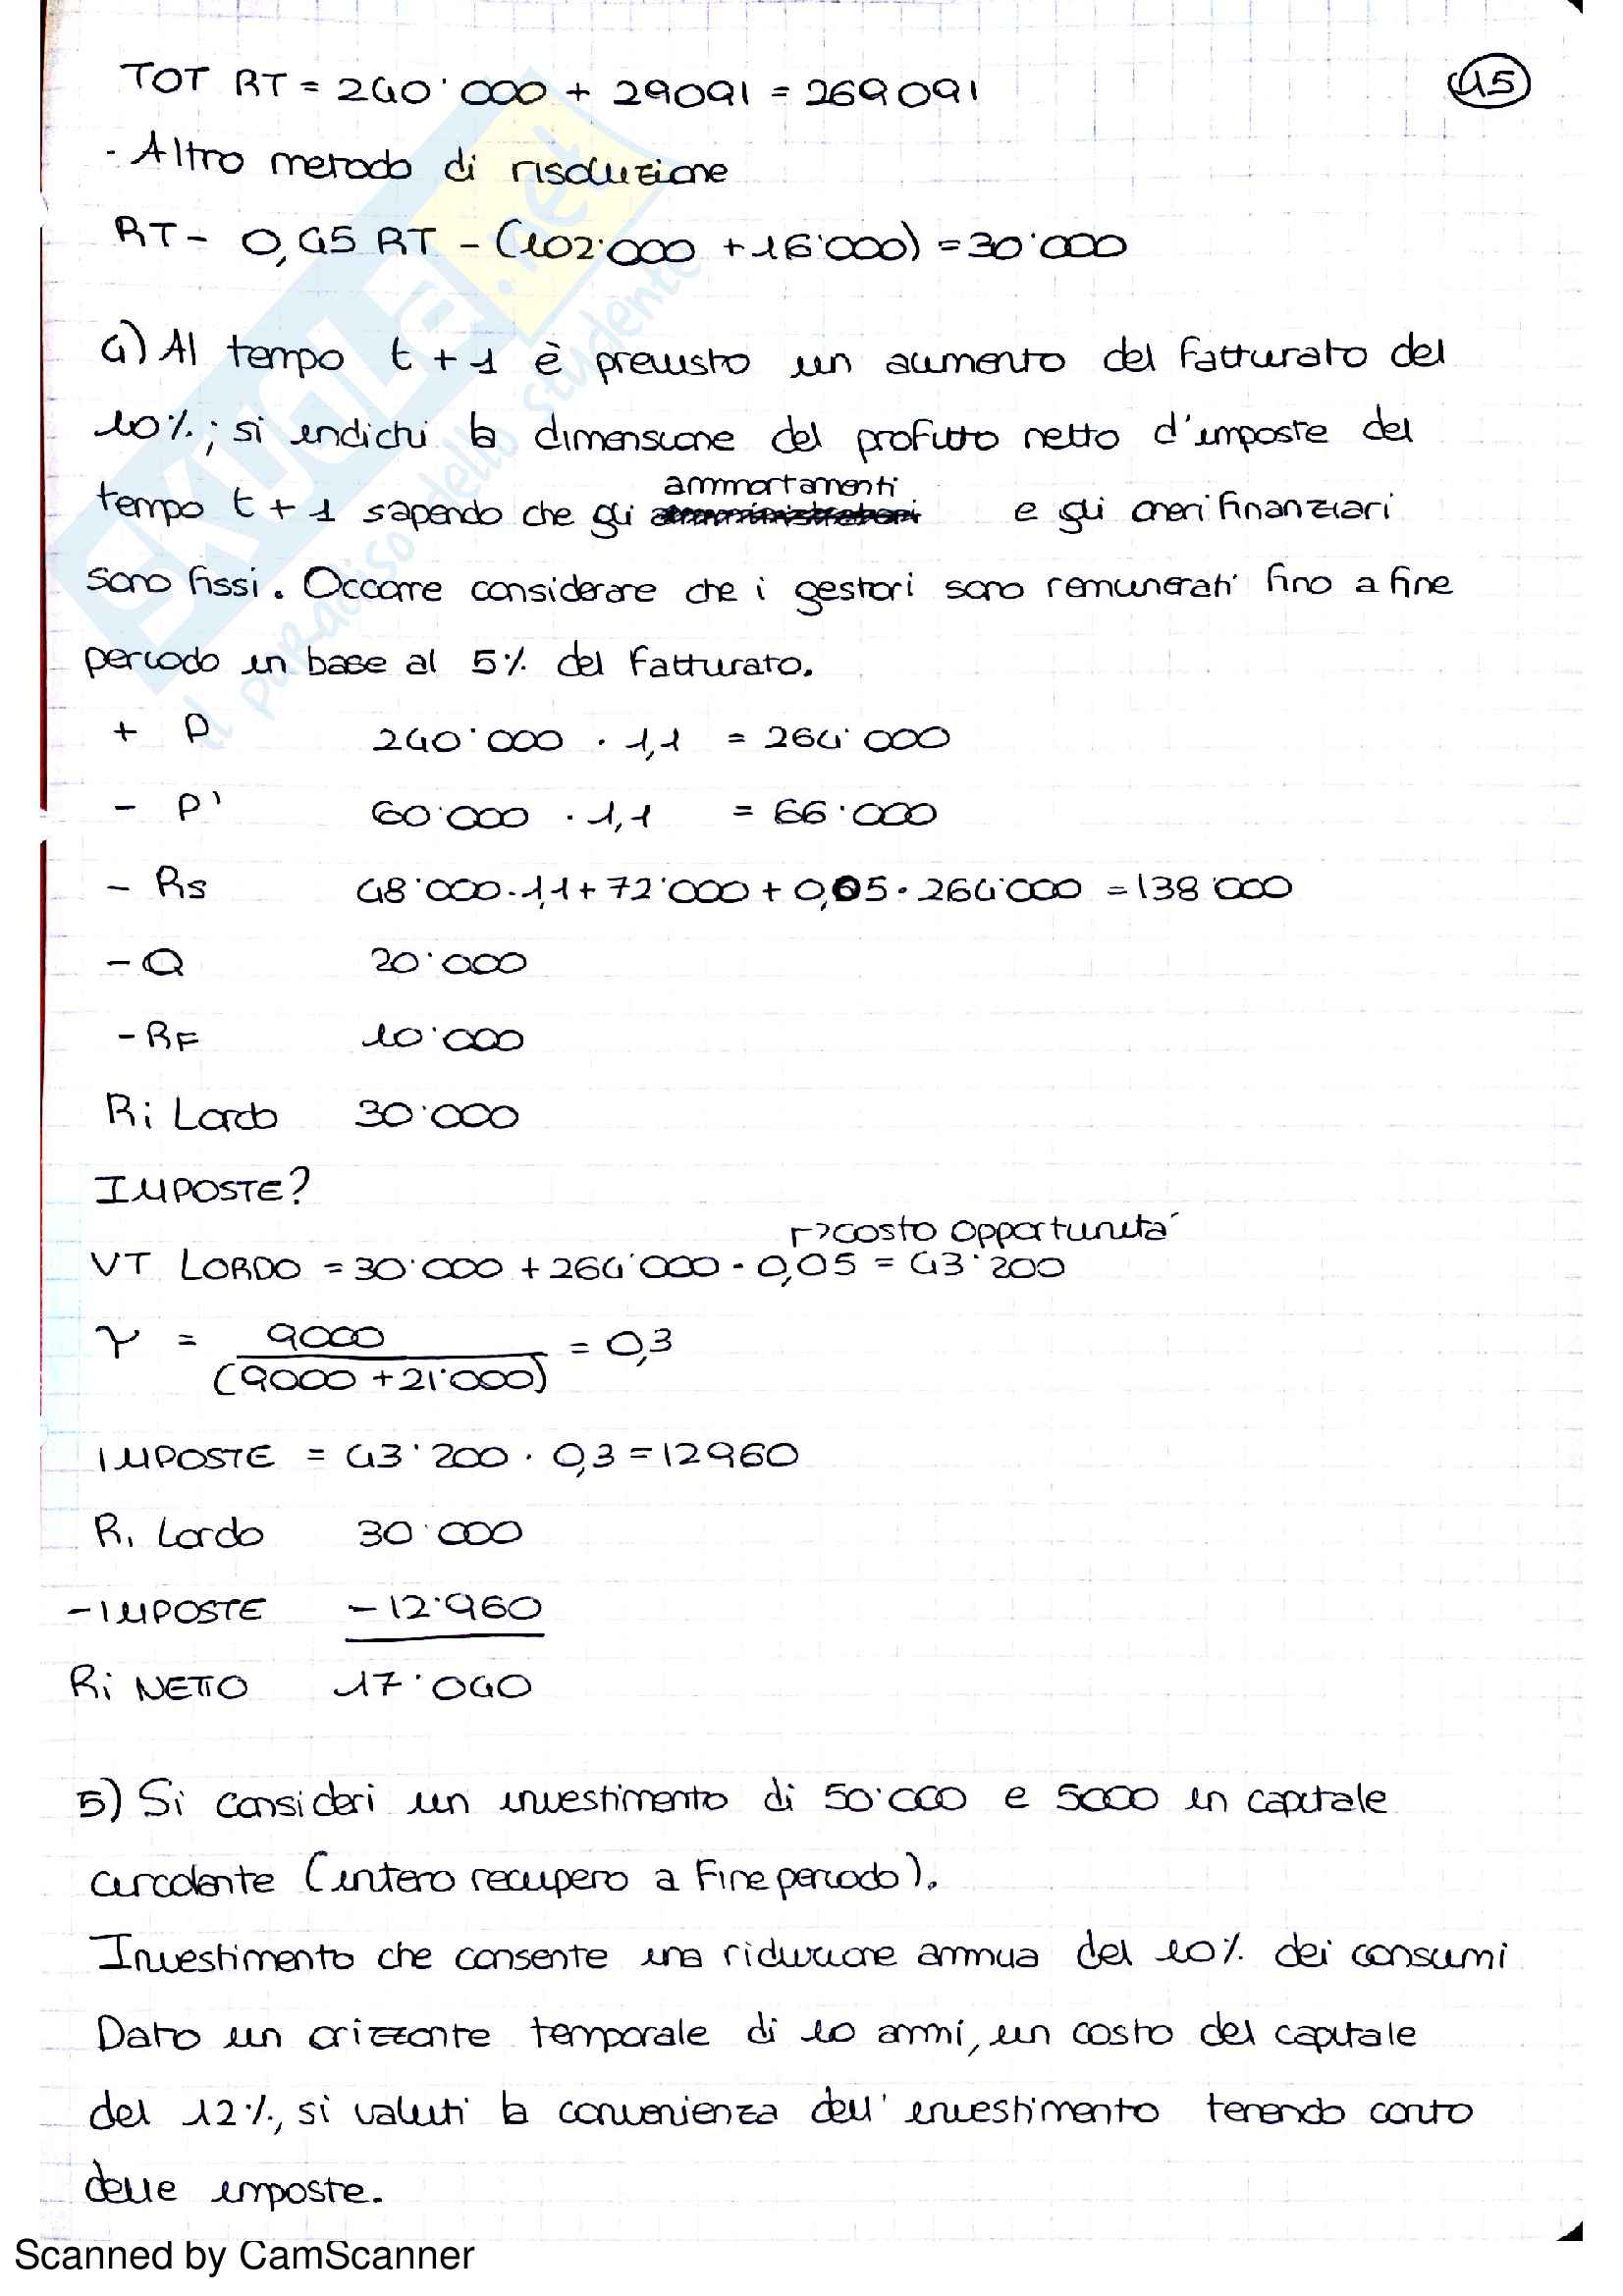 45
TOT RT = 240'000 + 29091 = 269091
- Altro metodo di risoluzione
RT - 0,45 RT - (102'000 + 16'000) = 30'000
4) Al tempo t + 1 è previsto un aumento del fatturato del
10%; si indichi la dimensione del profitto netto d'imposte del
tempo t + 1 sapendo che gli ammortamenti e gli oneri finanziari
sono fissi. Occorre considerare che i gestori sono remunerati fino a fine
periodo in base al 5% del fatturato.
+ P 240'000 · 1,1 = 264'000
- P' 60'000 · 1,1 = 66'000
- Rs 48'000 · 1,1 + 72'000 + 0,05 · 264'000 = 138'000
- Q 20'000
- RF 10'000
Ri Lordo 30'000
IMPOSTE?
r>costo opportunità
VT LORDO = 30'000 + 264'000 · 0,05 = 43'200
γ = 9000 / (9000 + 21'000) = 0,3
IMPOSTE = 43'200 · 0,3 = 12960
Ri Lordo 30'000
- IMPOSTE - 12'960
Ri NETTO 17'040
5) Si consideri un investimento di 50'000 e 5000 in capitale
circolante (intero recupero a fine periodo).
Investimento che consente una riduzione annua del 10% dei consumi
Dato un orizzonte temporale di 10 anni, un costo del capitale
del 12%, si valuti la convenienza dell'investimento tenendo conto
delle imposte.
SKUOLA.net
il paradiso dello studente
Scanned by CamScanner